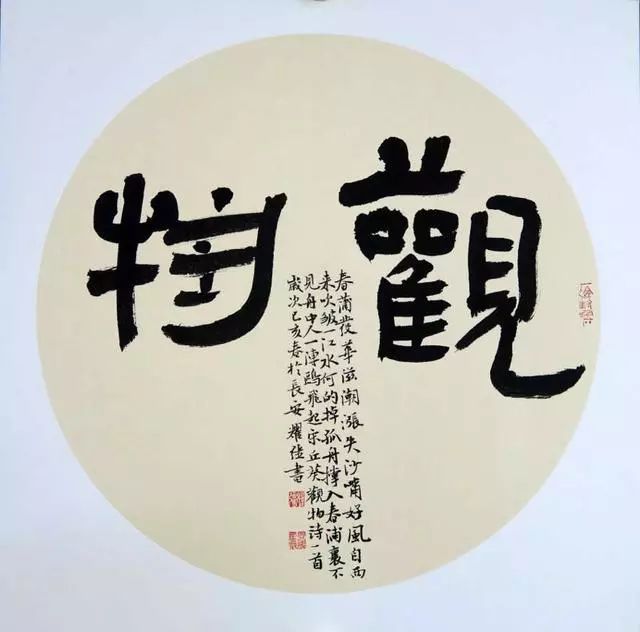 觀物
春蒲發華滋潮漲失沙嘴好風自西
来吹皺一江水何的掉孤舟撑入春浦裏不
見舟中人一陣鷗飛起宋丘葵觀物詩一首
歲次己亥春於長安耀書